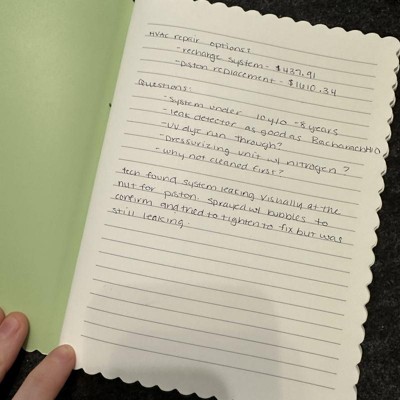 HVAC repair options:
- recharge system - $437.91
- piston replacement - $1610.34
Questions:
- System under 10 y/o ~8 years
- leak detector as good as Bacharach H10
- UV dye run through?
- Pressurizing unit w/ nitrogen?
- Why not cleaned first?
tech found system leaking visually at the
nut for piston. sprayed w/ bubbles to
confirm and tried to tighten to fix but was
still leaking.